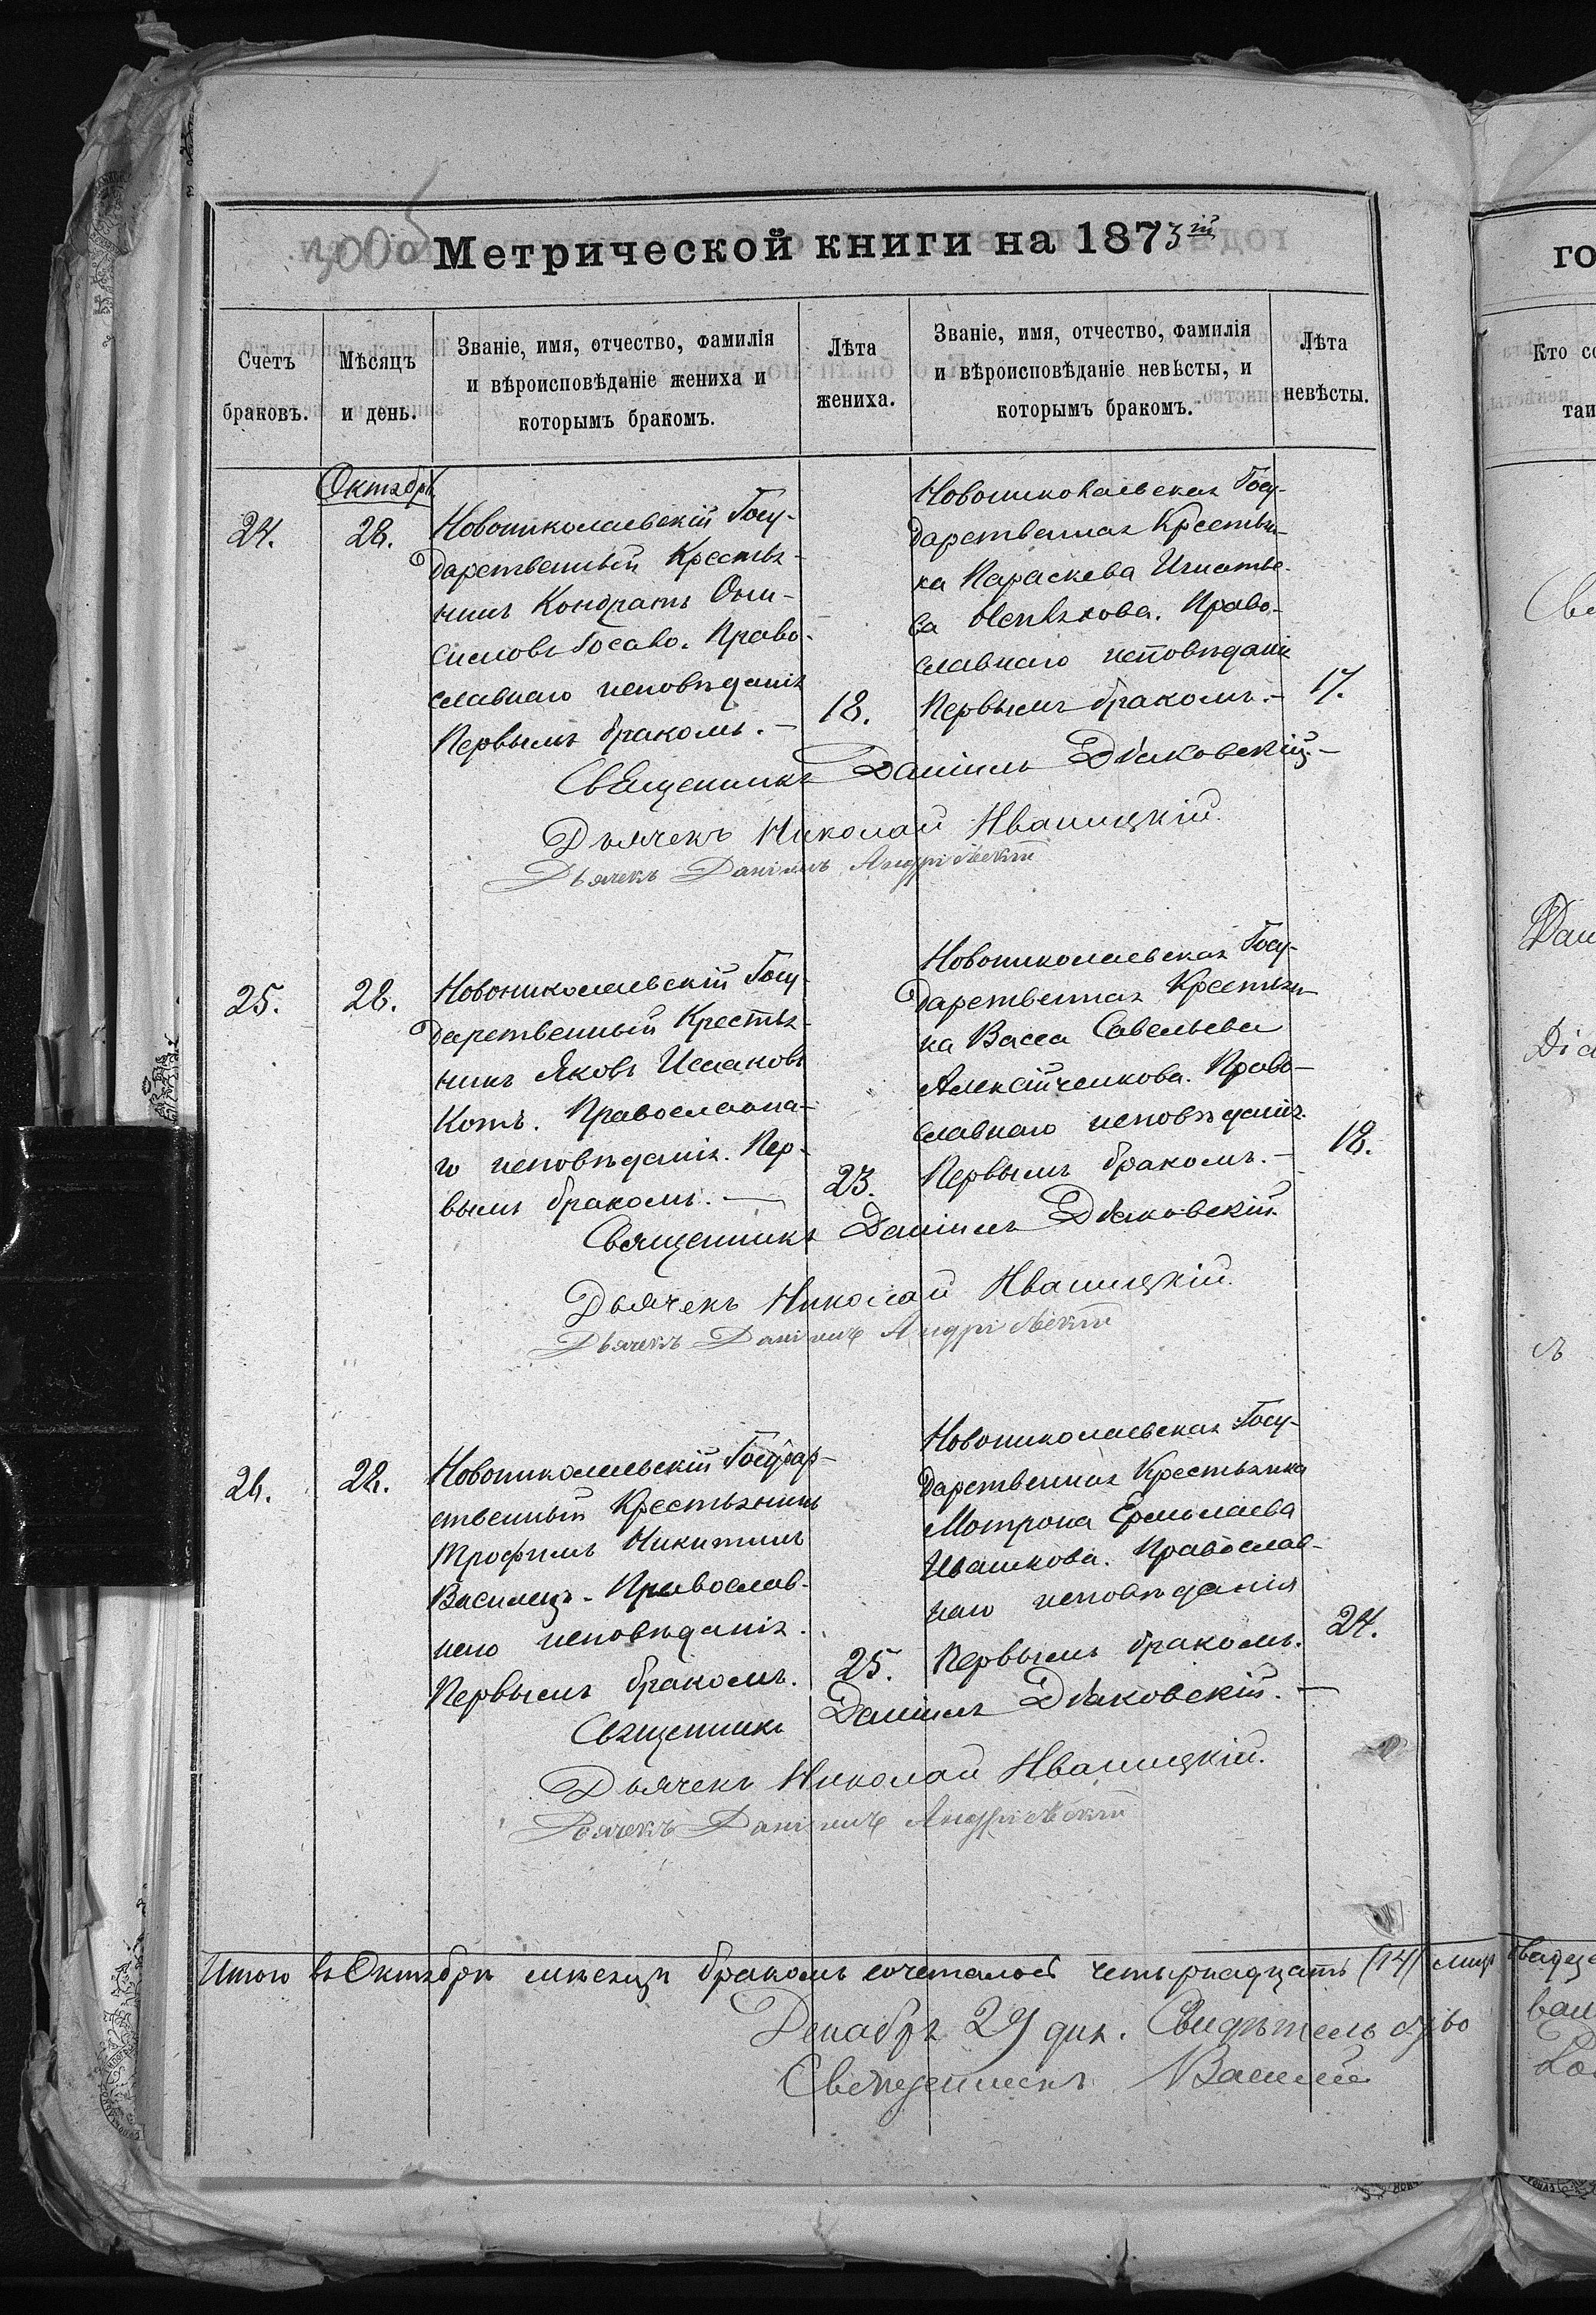 Метрической книги на 1873й
Счетъ браковъ.
Мѣсяцъ и день.
Званіе, имя, отчество, фамилія
и вѣроисповѣданіе жениха и
которымъ бракомъ.
Лѣта жениха.
Званіе, имя, отчество, фамилія
и вѣроисповѣданіе невѣсты, и
которымъ бракомъ.
Лѣта невѣсты.
Октябрь
24.
28.
Новониколаевскій Госу-
дарственный Крестья-
нинъ Кондратъ
Православнаго исповѣданія
Первымъ бракомъ. —
18.
Новониколаевская Госу-
дарственная Крестьян-
ка Параскева Игнатье-
ва Право-
славнаго исповѣданія
Первымъ бракомъ. —
17.
Священникъ Даніилъ Діаковскій. —
Дьячекъ Николай Иваницкій.
Дьячекъ Даніилъ Андріевскій
25.
28.
Новониколаевскій Госу-
дарственный Крестья-
нинъ Яковъ Исааковъ
Котъ. Православна-
го исповѣданія. Пер-
вымъ бракомъ. —
23.
Новониколаевская Госу-
дарственная Крестьян-
ка Васса Савельева
Алексійченкова. Право-
славнаго исповѣданія.
Первымъ бракомъ. —
18.
Священникъ Даніилъ Діаковскій.
Дьячекъ Николай Иваницкій.
Дьячекъ Даніилъ Андріевскій
26.
28.
Новониколаевскій Государ-
ственный Крестьянинъ
Трофимъ Никитинъ
Василецъ. Православ-
наго исповѣданія.
Первымъ бракомъ.
25.
Новониколаевская Госу-
дарственная Крестьянка
Мотрона Ермолаева
Ивашкова. Православ-
наго исповѣданія
Первымъ бракомъ.
24.
Священникъ Даніилъ Діаковскій. —
Дьячекъ Николай Иваницкій.
Дьячекъ Даніилъ Андріевскій
Итого въ Октябрѣ мѣсяцѣ бракомъ сочеталось четырнадцать (14)
Декабря 29 дня.
Священникъ Василій
го
Кто со
таи